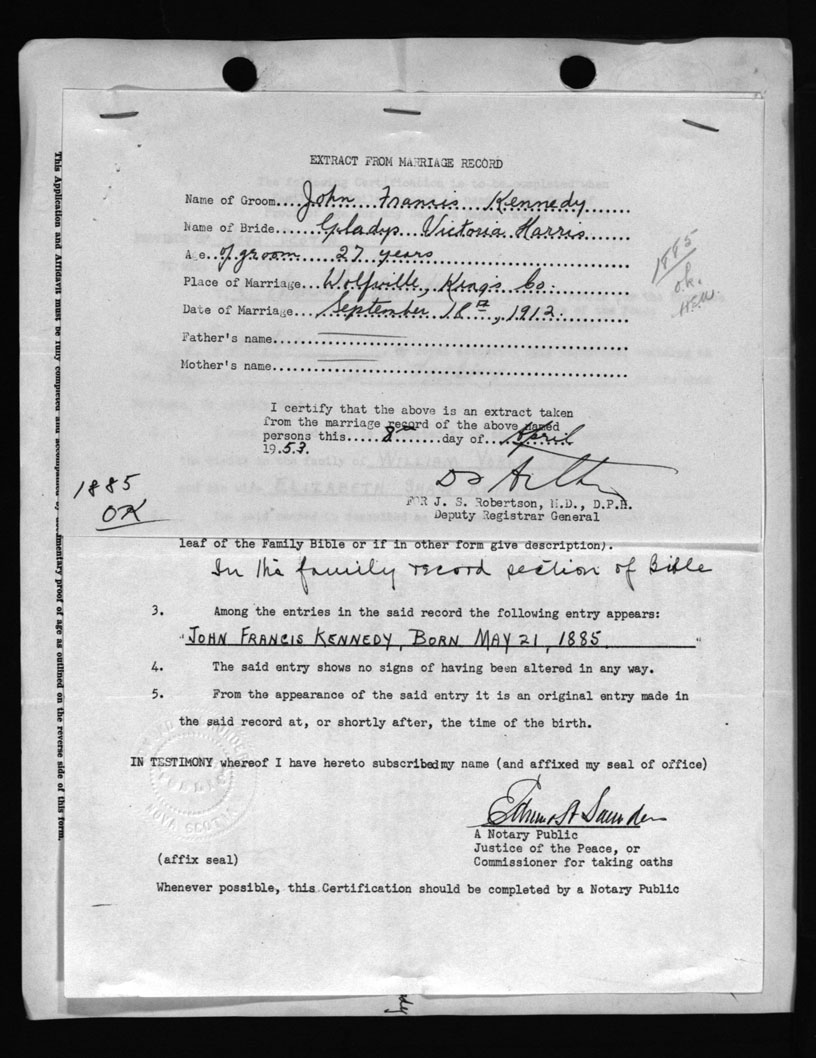 EXTRACT FROM MARRIAGE RECORD
Name of Groom....John Francis Kennedy
Name of Bride....Gladys Victoria Harris
Age..of groom.....27 years
Place of Marriage...Wolfville, Kings Co.
Date of Marriage...September 18th, 1912.
Father's name
Mother's name
1885
o.k.
I certify that the above is an extract taken
from the marriage record of the above named
persons this.....8th....day of...April
19.53.
FOR J. S. Robertson, M.D., D.P.H.
Deputy Registrar General
1885
OK
WILLIAM
and his wife ELIZABETH
leaf of the Family Bible or if in other form give description).
In the family record section of Bible
3. Among the entries in the said record the following entry appears:
"JOHN FRANCIS KENNEDY, BORN MAY 21, 1885"
4. The said entry shows no signs of having been altered in any way.
5. From the appearance of the said entry it is an original entry made in
the said record at, or shortly after, the time of the birth.
IN TESTIMONY whereof I have hereto subscribed my name (and affixed my seal of office)
PUBLIC
NOVA SCOTIA
A Notary Public
Justice of the Peace, or
Commissioner for taking oaths
(affix seal)
Whenever possible, this Certification should be completed by a Notary Public
This Application and Affidavit must be fully completed and accompanied by documentary proof of age as outlined on the reverse side of this form.